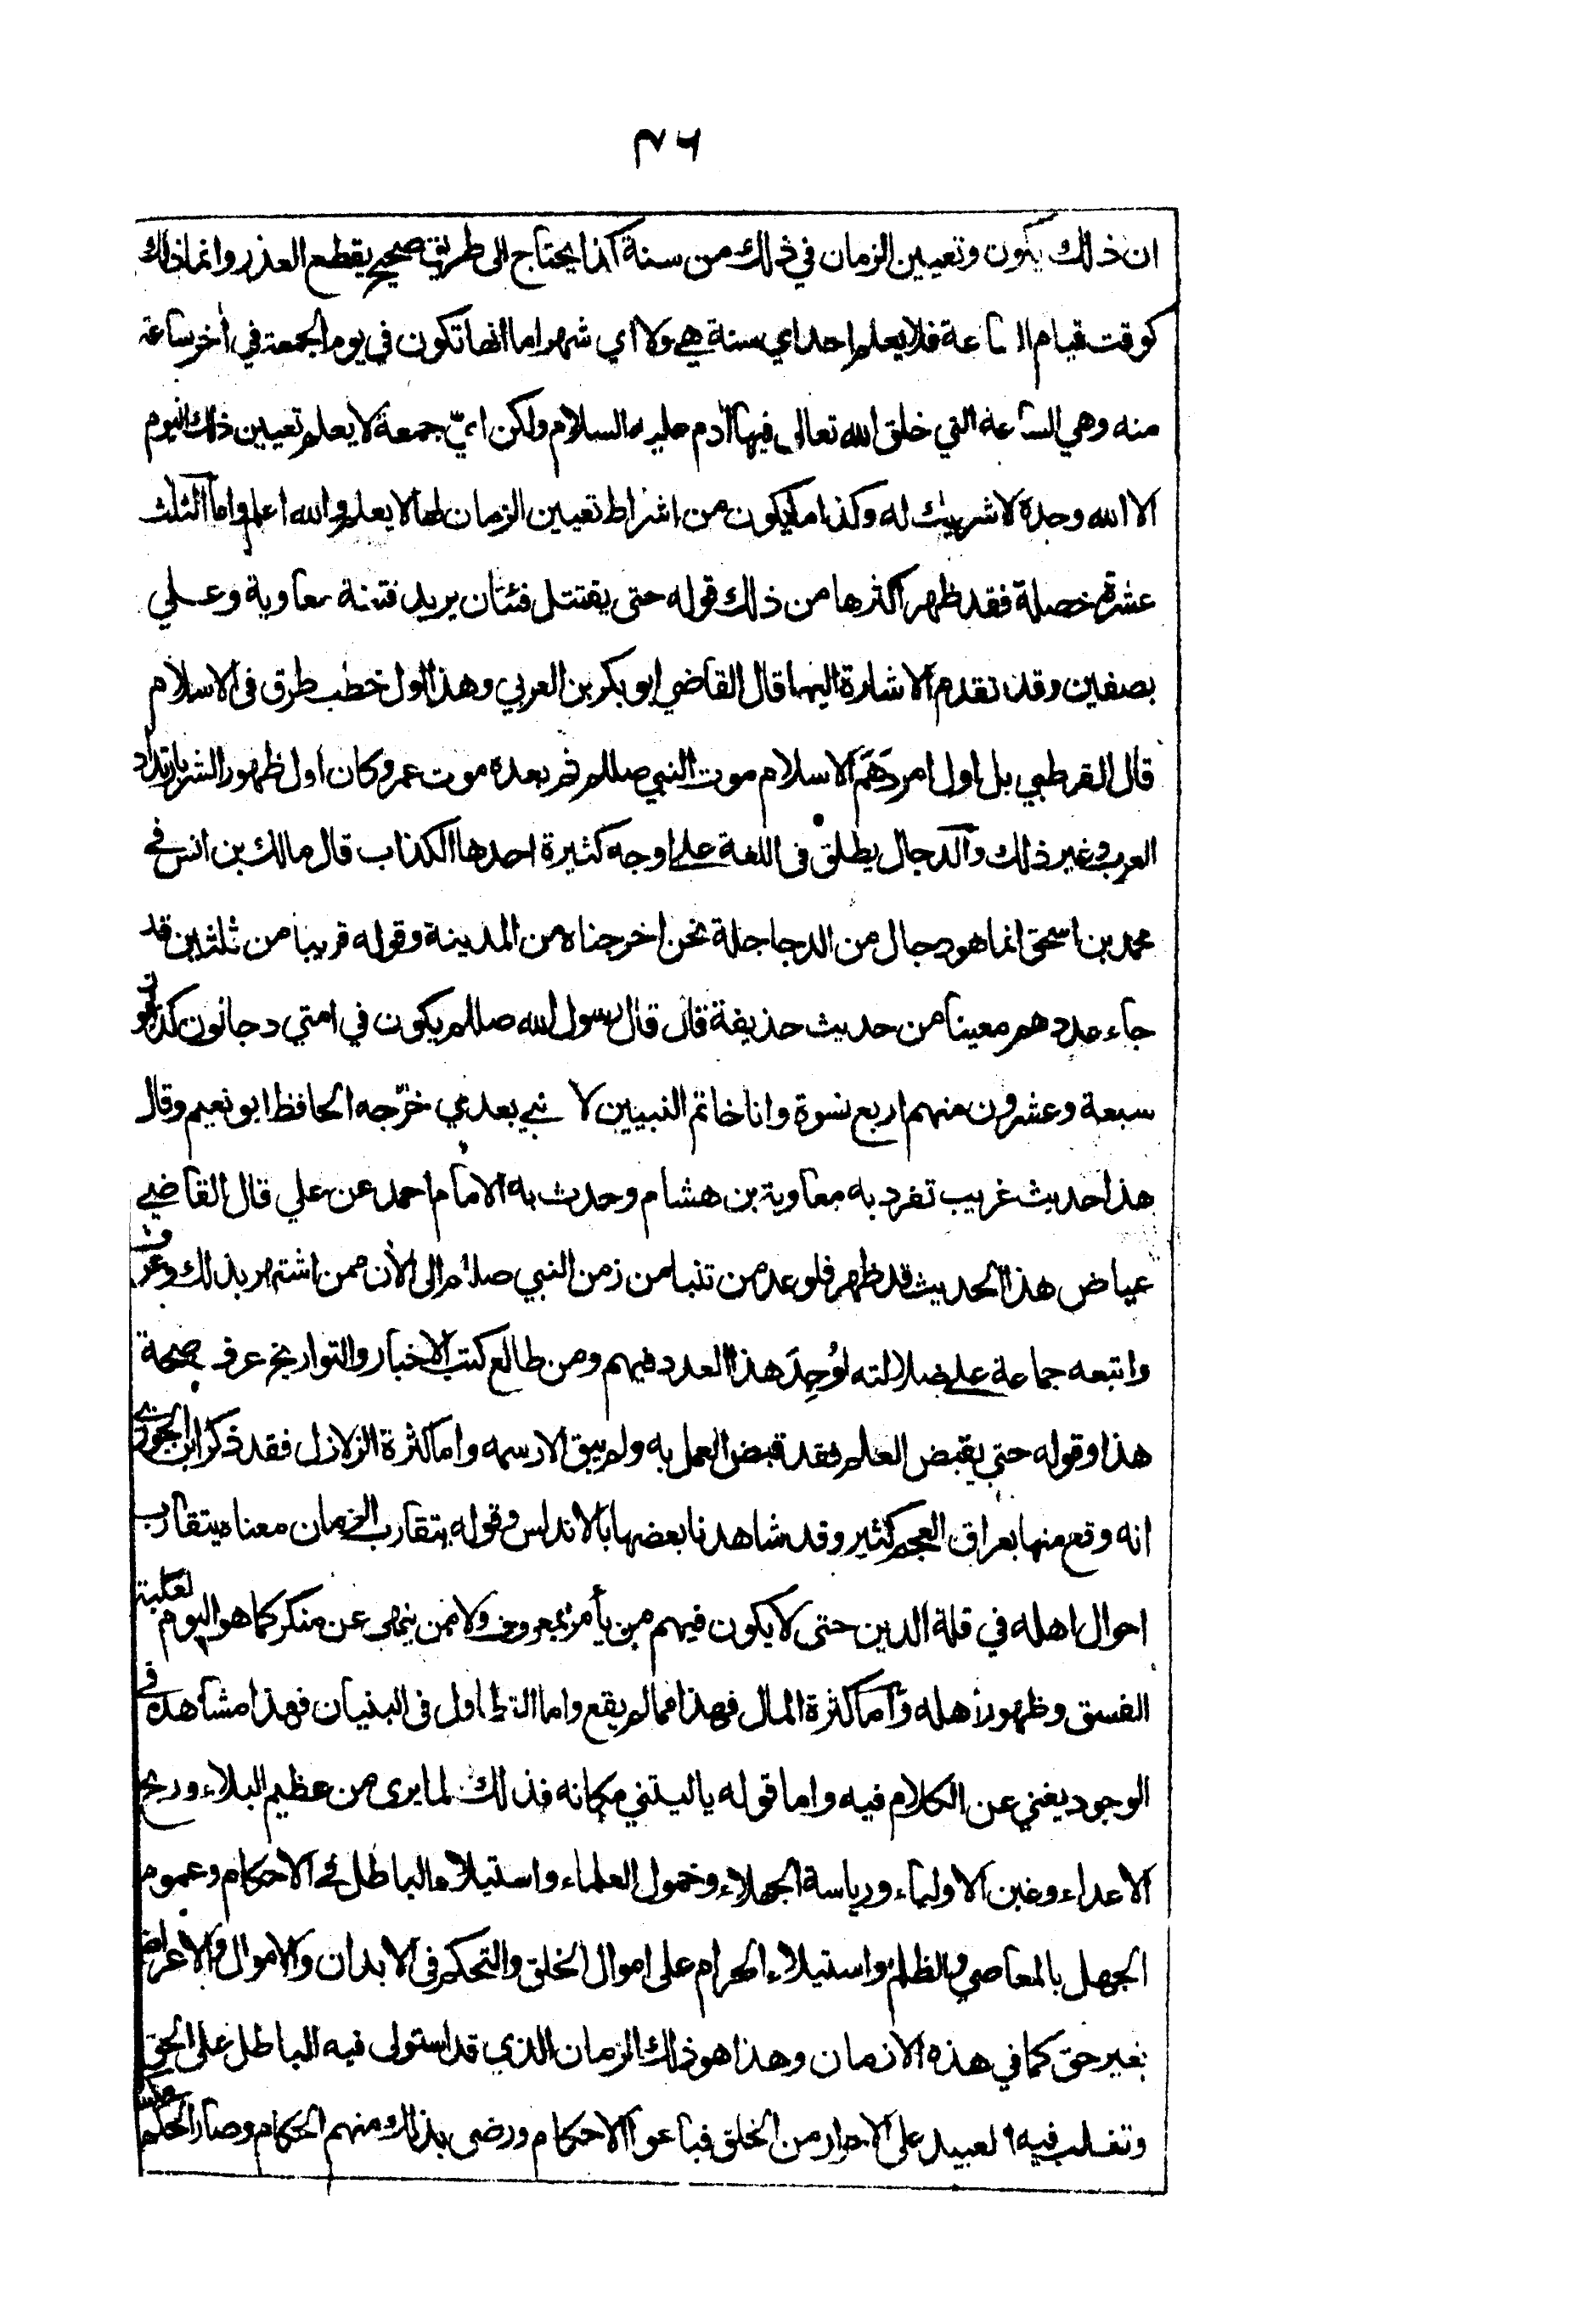 ٣٦
ان ذلك يكون وتعيين الزمان في ذلك من سنة كذا يحتاج الى طريق صحيح يقطع العذر وانما ذلك
كوقت قيام الساعة فلا يعلم احد اي سنة هي ولا اي شهر اما انها تكون في يوم الجمعة في أخر ساعة
منه وهي الساعة التي خلق الله تعالى فيها آدم عليه السلام ولكن ايّ جمعة لا يعلم تعيين ذلك اليوم
الا الله وحده لا شريك له وكذا ما يكون من اشراط تعيين الزمان لها لا يعلم والله اعلم واما الثلث
عشرة خصلة فقد ظهر اكثرها من ذلك قوله حتى يقتتل فئتان يريد فتنة معاوية وعلي
بصفين وقد تقدم الاشارة اليها قال القاضي ابو بكر بن العربي وهذا اول خطب طرق في الاسلام
قال القرطبي بل اول امر دَهَمَ الاسلام موت النبي صللم ثم بعده موت عمر وكان اول ظهور الشر بارتداد
العرب وغير ذلك والدجال يطلق في اللغة على اوجه كثيرة احدها الكذاب قال مالك بن انس في
محمد بن اسحق انما هو دجال من الدجاجلة نحن اخرجناه من المدينة وقوله قريبا من ثلثين قد
جاء عددهم معينا من حديث حذيفة قال قال رسول الله صللم يكون في امتي دجالون كذابو
ن
سبعة وعشرون منهم اربع نسوة وانا خاتم النبيين لا نبي بعدي خرّجه الحافظ ابو نعيم وقال
هذا حديث غريب تفرد به معاوية بن هشام وحدث به الامام احمد عن علي قال القاضي
عياض هذا الحديث قد ظهر فلو عد من تنبا من زمن النبي صللم الى الأن ممن اشتهر بذلك وعرف
واتبعه جماعة على ضلالته لوُجِدَ هذا العدد فيهم ومن طالع كتب الاخبار والتواريخ عرف صحة
هذا وقوله حتى يقبض العلم فقد قبض العمل به ولم يبق الا رسمه واما كثرة الزلازل فقد ذكر ابن الجوزي
انه وقع منها بعراق العجم كثير وقد شاهدنا بعضها بالاندلس وقوله يتقارب الزمان معناه يتقارب
احوال اهله في قلة الدين حتى لا يكون فيهم من يأمر بمعروف ولا من ينهى عن منكر كما هو اليوم لغلبة
الفسق وظهور أهله وأما كثرة المال فهذا مما لم يقع واما التطاول في البنيان فهذا مشاهد في
الوجود يغني عن الكلام فيه واما قوله يا ليتني مكانه فذلك لما يرى من عظيم البلاء وربح
الاعداء وغبن الاولياء ورياسة الجهلاء وخمول العلماء واستيلاء الباطل في الاحكام وعموم
الجهل بالمعاصي والظلم واستيلاء الحرام على اموال الخلق والتحكم في الابدان والاموال والاعراض
بغير حق كما في هذه الازمان وهذا هو ذلك الزمان الذي قد استولى فيه الباطل على الحق
وتغلب فيه العبيد على الاحرار من الخلق فباعوا الاحكام ورضي بذلك منهم الحكام وصار الحكم